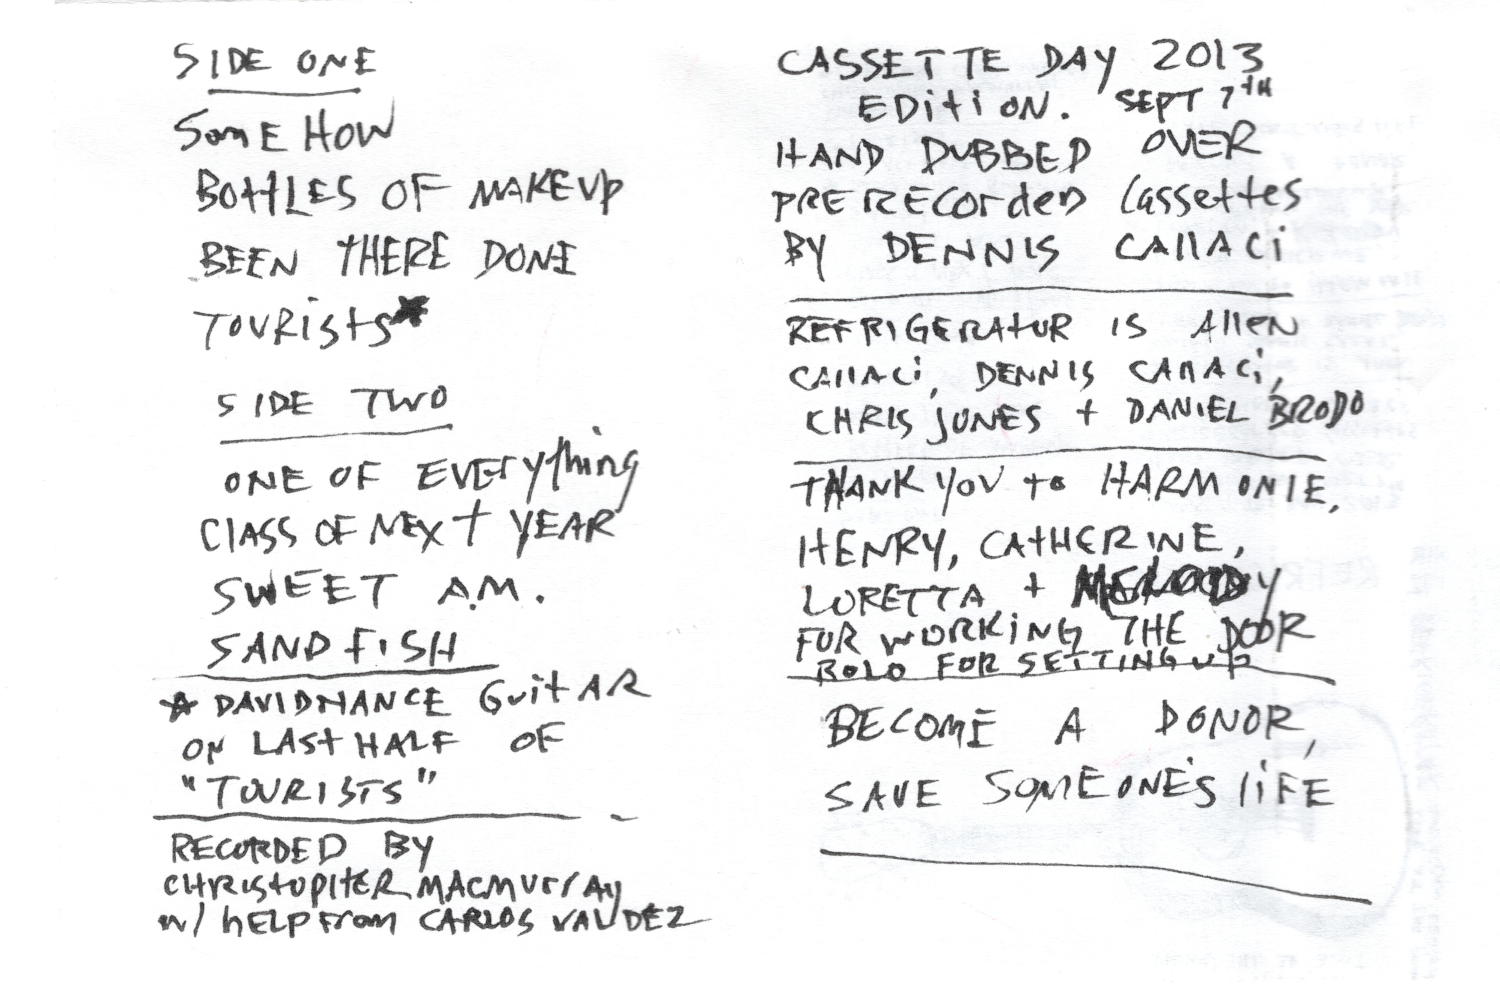 SIDE ONE
SomE HOW
BOttLES OF MAKEUP
BEEN tHERE DONE
TOURists*
SIDE TWO
ONE OF EVERything
ClASS OF NEXT YEAR
SWEET A.M.
SANDFISH
* DAVID NANCE GuitAR
ON LASt HALF OF
"TOURISTS"
RECORDED BY
CHRIStOPHER MACMUrrAy
w/ hELP From CARLOS VALDEZ
CASSETTE DAY 2013
EDitiON. SEPT 7tH
HAND DUBBED OVER
PRERECorded Cassettes
BY DENNIS CAllACi
REFRIGERAtUR IS AllEN
CAllACi, DENNIS CAllACi,
CHRIS JONES + DANIEL BRODO
THANK YOU to HARMONIE,
HENRY, CAtHERINE,
LORETTA + MELODY
FOR WORKING THE DOOR
ROLO FOR SETTING UP
BECOME A DONOR,
SAVE SOMEONE'S liFE